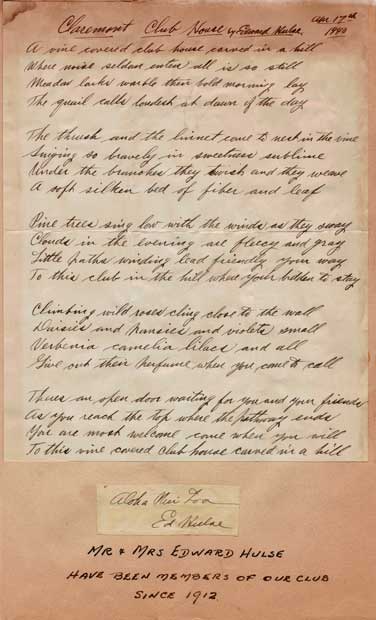 Claremont Club House by Edward Hulse. Apr 17th 1940
A vine coverd club house carved in a hill
Where noise seldom enters all is so still
Meadow larks warble their bold morning lay
The quail calls loudest at dawn of the day

The thrush and the linnet come to nest in the vine
Singing so bravely in sweetness sublime
Under the branches they twist and they weave
A soft silken bed of fiber and leaf

Pine trees sing low with the winds as they sway
Clouds in the evening are fleecy and gray
Little paths winding lead friendly your way
To this club in the hill where your bidden to stay

Climbing wild roses cling close to the wall
Daisies and pansies and violets small
Verbenia camelia lilacs and all
Give out their perfume when you come to call

Theres an open door waiting for you and your friends
As you reach the top where the pathway ends
You are most welcome come when you will
To this vine covered club house carved in a hill

Aloha Nui Loa
Ed Hulse

MR & MRS EDWARD HULSE
HAVE BEEN MEMBERS OF OUR CLUB
SINCE 1912